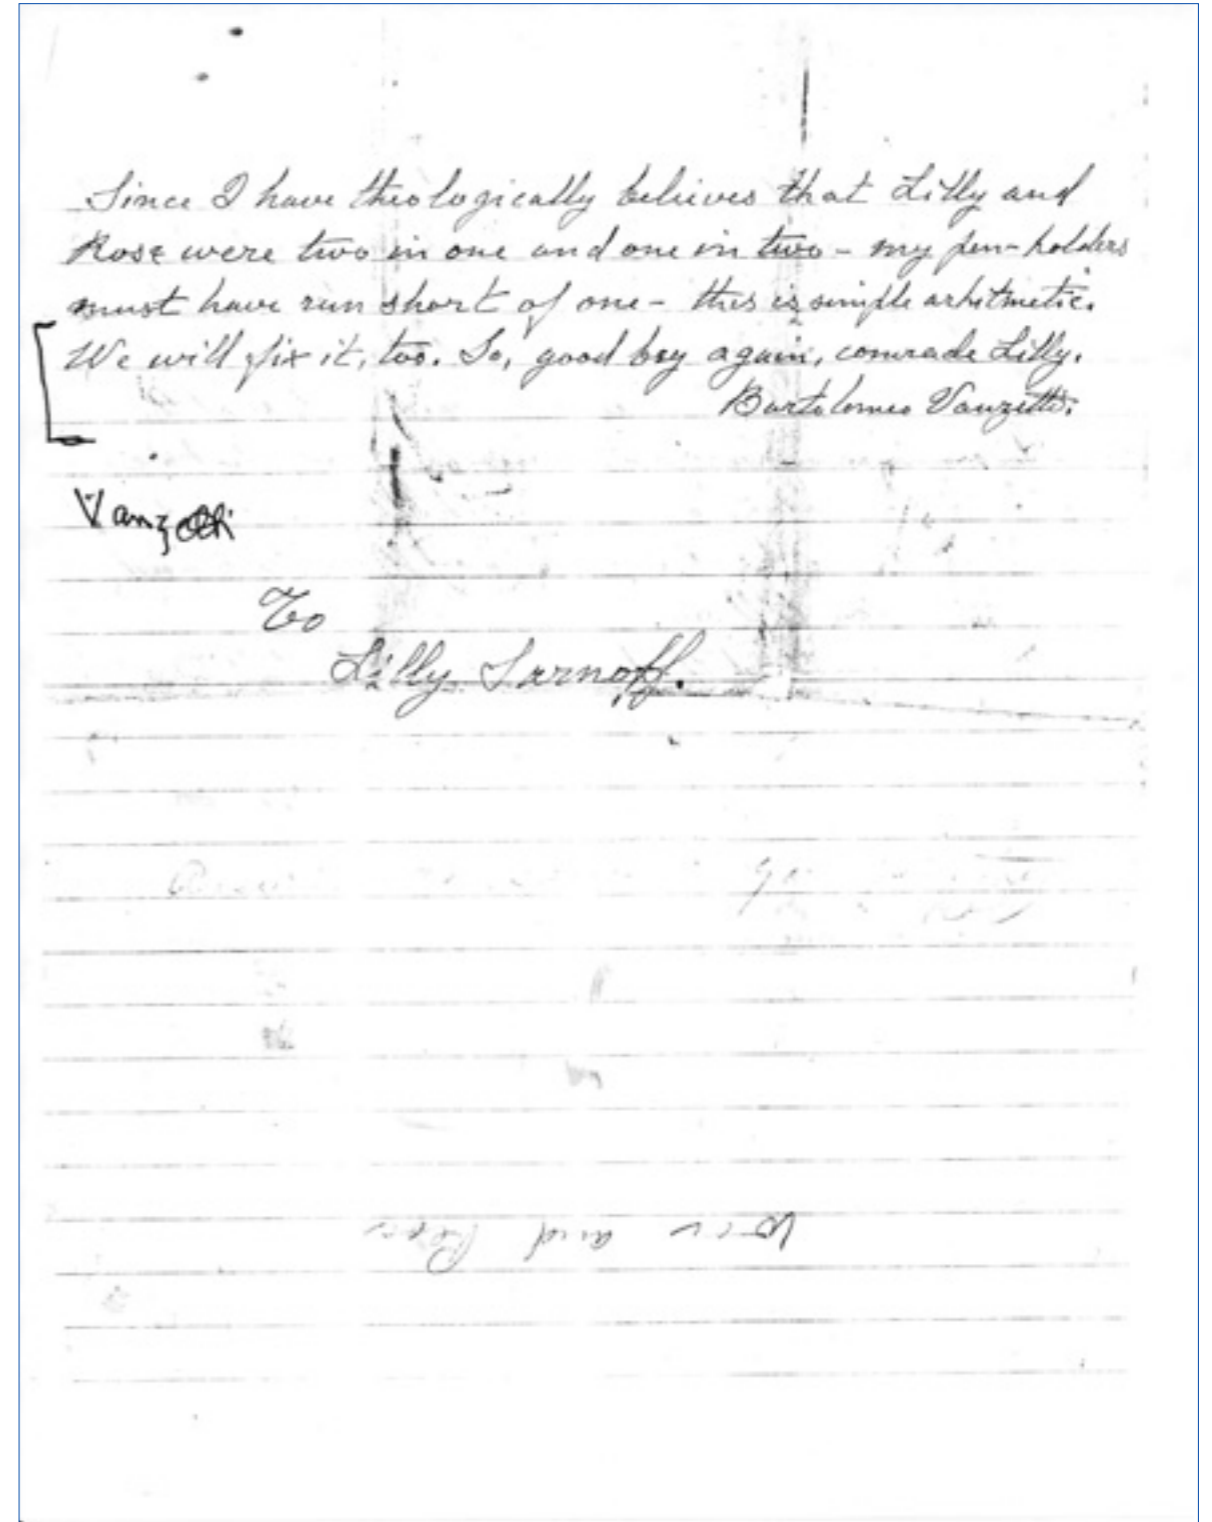 Since I have theologically believes that Lilly and
Rose were two in one and one in two - my pen-holders
must have run short of one - this is simple arhitmetic.
We will fix it, too. So, good bey again, comrade Lilly.
Bartolomeo Vanzetti.
Vanzetti
To
Lilly Sarnoff.
and